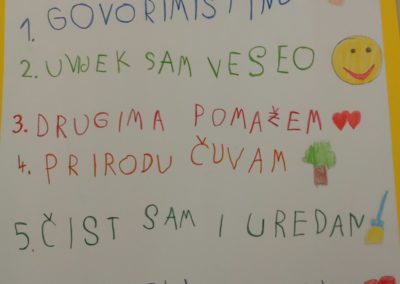 1. GOVORIM ISTINU
2. UVIJEK SAM VESEO
3. DRUGIMA POMAŽEM
4. PRIRODU ČUVAM
5. ČIST SAM I UREDAN